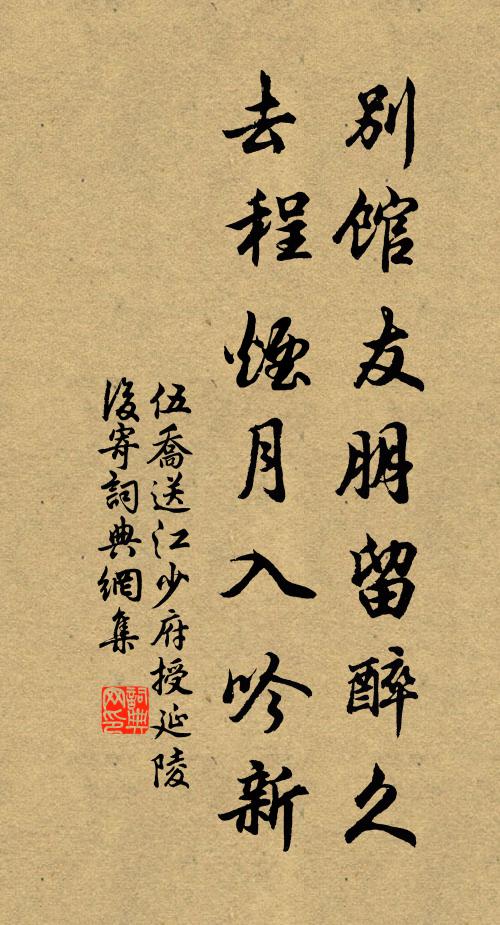 別館友朋留醉久
去程煙月入吟新
伍喬送江少府授延陵
後寄詞典網集
詞典
网印